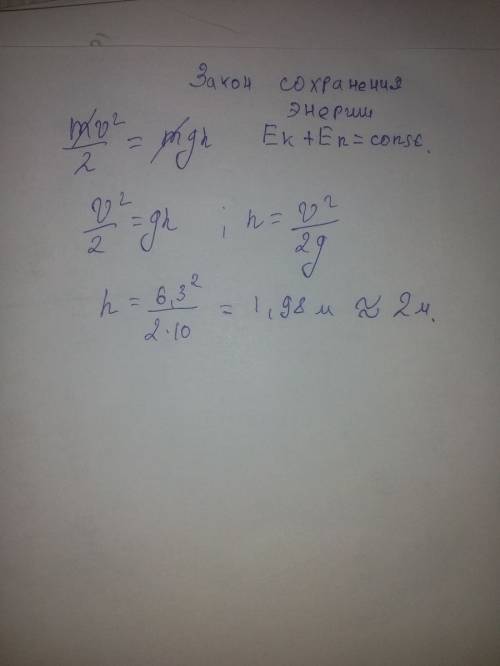 Закон сохранения
энергии
mv²/2 = mgh   Eк + Eп = const.
v²/2 = gh ; h = v²/2g
h = 6,3²/2·10 = 1,98 м ≈ 2 м.